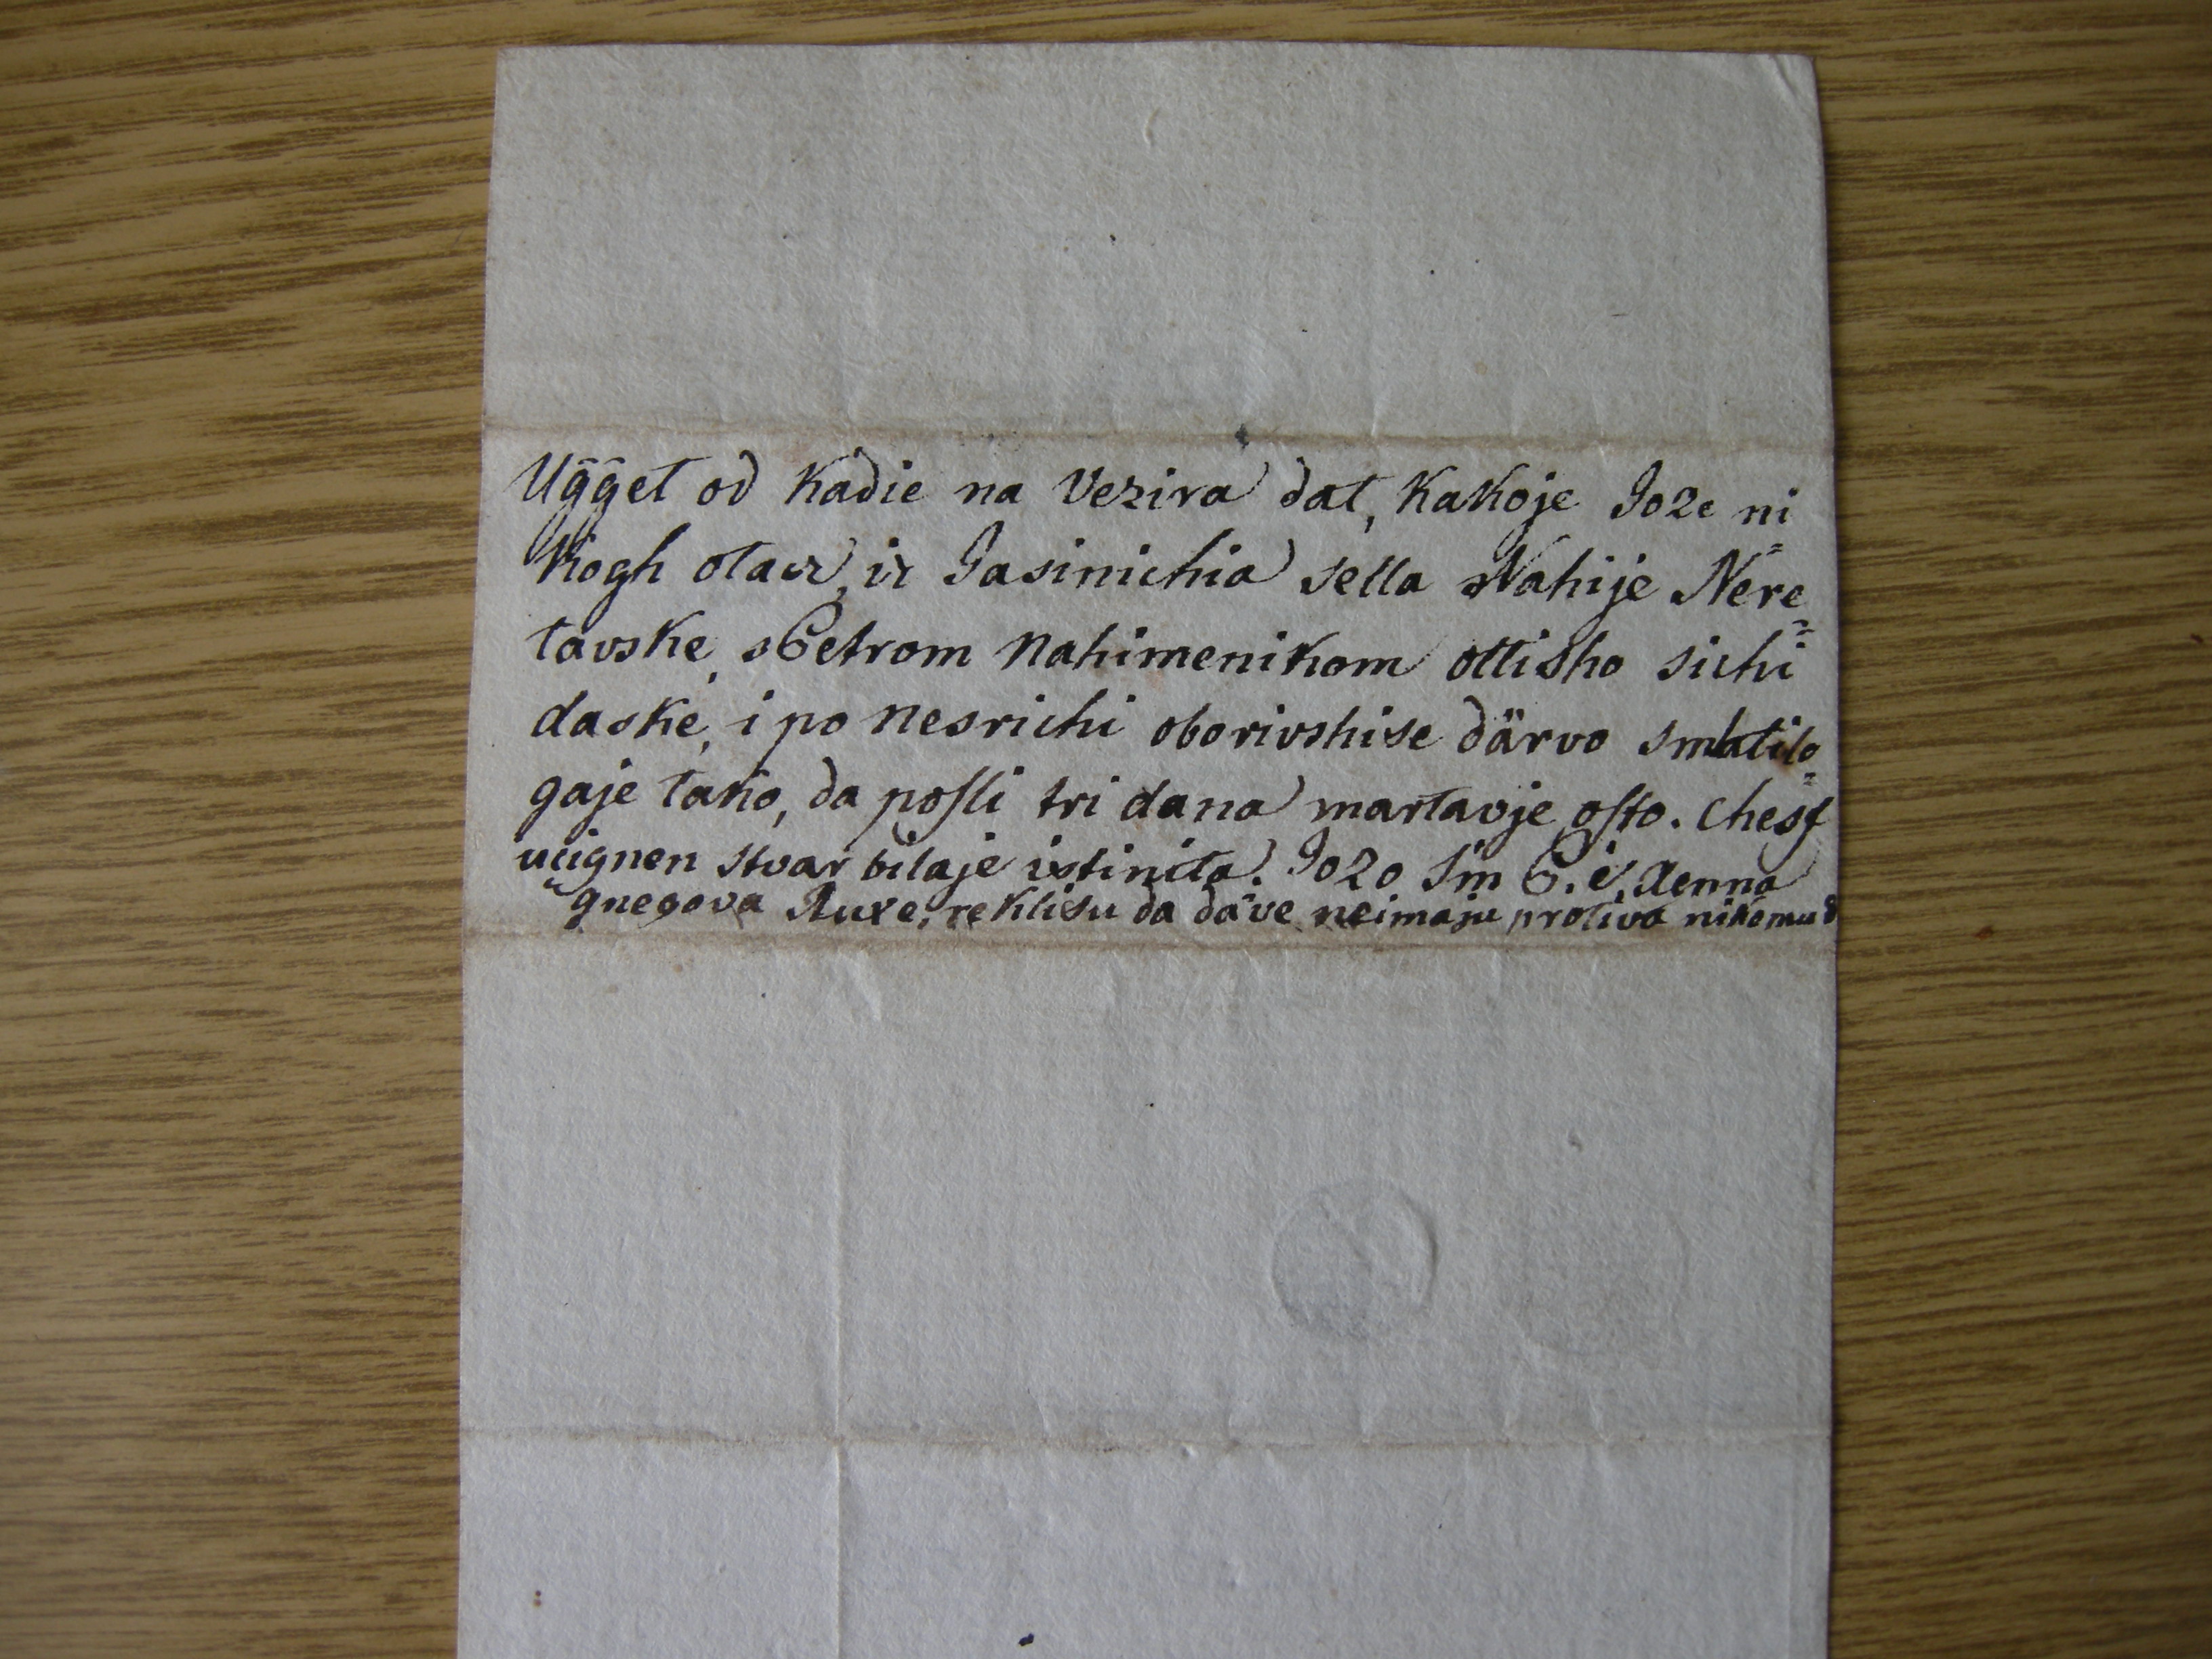 Uğğet od Kadie na Vezira dat, Kakoje Joze ni
Kogh otacz, iz Jasinichia sella Nahije Nere
tavske, s Petrom Nahimenikom ottisho sichi
daske, i po nesrichi oborivshise därvo smlatilo
gaje tako, da posli tri dana martavje osto. Chesf
ucignen stvar bilaje istinita. Jozo sin P. i, xenna
gnegova Ruxe, reklisu da dave neimaju protiva nikomu